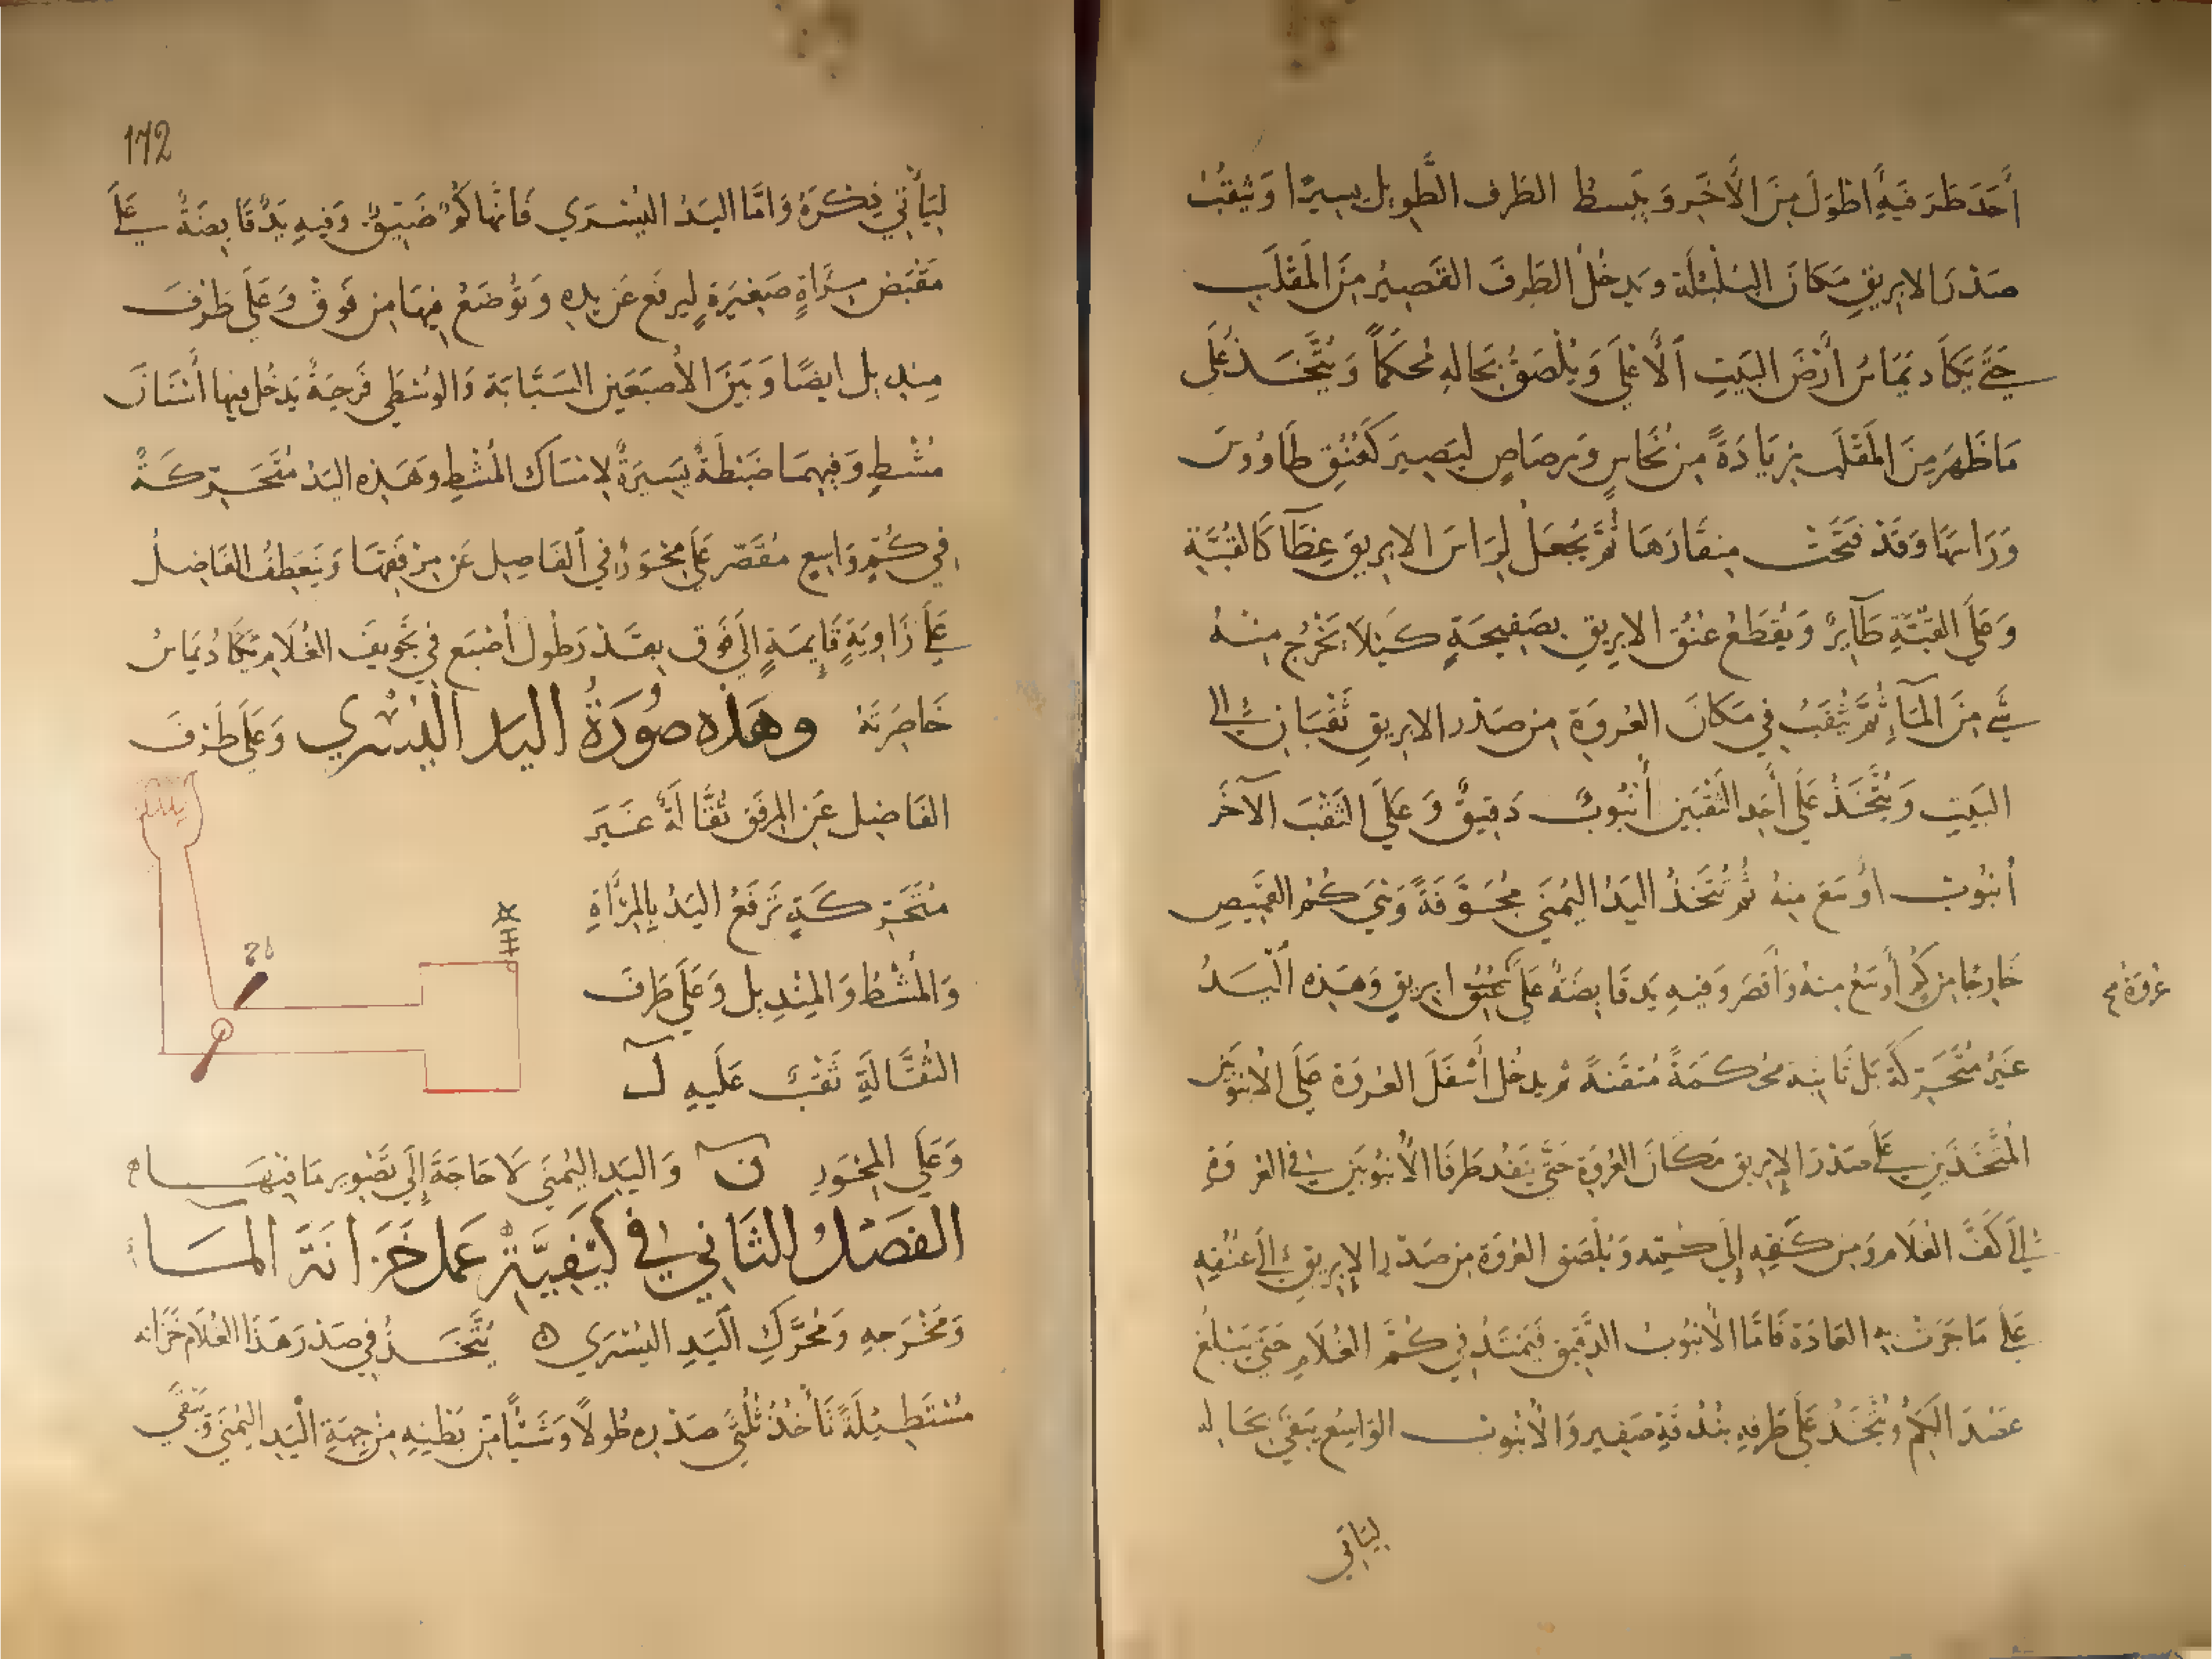 أَحَدَ طَرَفَيهِ أَطْوَلَ مِنَ الأَخَرِ وَيبسط الطَرف الطَّوِيل يسِيرًا وَيثقَبُ
صَدْرَ الابرِيقِ مَكَانَ البُلْبُلَة وَيدخُلُ الطَرفَ القَصِيرُ مِنَ المَقْلَبِ
حَتَّى يَكَاد يمَاسُ أَرْضَ البَيتِ الأَعْلَى وَيُلْصَقُ بحَالِهِ مُحكَمًا وَيُتَّخَذُ عَلَى
مَا ظَهَرَ مِنَ المَقْلَبِ زِيَادَةً مِنْ نُحَاسٍ وَرَصَاصٍ لِيَصِيرَ كَعُنُقِ طَاوُوسَ
وَرَاسهَا وَقَدْ فَتَحَتْ مِنقَارَهَا ثُمَّ يُجعَلُ لِرَاسِ الابرِيقِ غِطَآ كَالقُبَّةِ
وَعَلَى القُبَّةِ طَآيرٌ وَيُقطَعُ عُنُقُ الابرِيقِ بِصَفِيحَةٍ كَيْلَا يَخْرُجِ مِنْهُ
شَيٌ مِنَ المَآءِ ثُمَّ يُثقَبُ فِي مَكَانَ العُروَةِ مِن صَدْر الابرِيقِ ثَقْبَانِ إلى
البَيتِ وَيُتَّخَذُ عَلَى أَحَدِ الثَقْبَينِ أُنْبُوبٌ دَقِيقٌ وَعَلَى الثَقْبِ الآخَر
أُنبُوبٌ أوسَعَ مِنهُ ثُمَّ تُتَّخَذُ اليَدُ اليُمنَى مُجَوَّفَةً وَيُرَى كُمُ القَمِيصِ
خَارِجًا مِن كُمٍ أَوسَعُ مِنهُ وَأَقصَرَ وَفِيهِ يَد قَابِضَةٌ عَلَى عُنُقِ ابرِيقٍ وَهَذِهِ اليَدُ
عروة صح
غَيرُ مُتَحَرِّكَةً بَل ثَابِتَة مُحكَمَةً مُتقَنةً ثم يدخُل أَسْفَلَ العُروَة عَلَى الأُنبُوبَينِ
المُتَّخَذَينِ عَلَى صَدْرَ الإبرِيق مَكَانَ العُروَةِ حَتَّى يَنفُد طَرفَا الأُنبُوبَينِ فِي العُروَةِ
إلَى كَفِّ الغُلَام وَمِن كَفِّهِ إِلَى كُمِّه وَيُلْصَق العُروَةَ مِن صَدْرِ الإبرِيقِ إلَى عُنُقِهِ
عَلَى مَا جَرَتْ بِه العَادَة فَامَّا الأُنبُوبُ الدَقِيق فَيمتَدُ فِي كُمِّ الغُلَامِ حَتَّى يَبْلُغ
عَضُدَ الكُمِّ وَيُتَّخَذُ عَلَى طَرفِهِ بُنْدُقَةٍ صَغِير وَالأُنْبُوبُ الوَاسِعُ يَبقَى بحَالِه
لِيَاتِي
172
لِيَأتِي ذِكْرَهُ وَامَّا اليَدُ اليُسْرَي فَانهَا كُمٌّ ضَيّقٌ وَفِيهِ يَدٌ قَابِضَةٌ عَلَى
مَقْبَض مِرَاةٍ صَغِيرَةٍ لِيرفَعَ عَن يدِه وَتُوضَعُ فِيهَا مِن فَوق وَعَلَى طَرفَ
مِندِيل ايضًا وَبَينَ الأصبَعَين السَبَّابَة وَالوُسْطَي فَرجَةٌ يَدخُل فِيهَا أَسْنَانَ
مُشْطٍ وَفِيهِمَا ضَبْطَةٌ يَسِيرَةٌ لِامسَاك المُشْطِ وَهَذِه اليَدُ مُتَحَرِّكَةٌ
فِي كُمٍّ وَاسِعٍ مُقَصَّر عَلَى مِحْوَرٍ فِي الفَاصِل عَن مِرْفَقِهَا وَيَنعَطِفُ الفَاضِلُ
عَلَى زَاوِيَةٍ قَايِمَةٍ إلَي فَوق بِقَدْر طُول أُصْبَع فِي تَجوِيفَ الغُلَامِ يَكَادُ يمَاسُ
خَاصِرَتَهُ وهَذِه صُورَةُ اليَد اليُسْرَي وَعَلَى طَرْفَ
الفَاضِل عَنِ المِرفَق ثُقَّالَةٌ غَيرَ
مُتَحَرِّكَةٍ تَرفَعُ اليَدُ بِالمِرْآةِ
وَالمُشْطُ وَالمِنْدِيل وَعَلَى طَرفَ
الثُقَّالَةِ ثَقْبٌ عَلَيهِ ل
وَعَلَى المِحْوَرِ ن وَاليَدِ اليُمنَى لَا حَاجَةَ إلَي تَصْوِير مَا فِيهَا
الفَصْلُ الثَانِي فِي كَيْفِيَّةِ عَمَل خَزَانَة المَاء
وَمَخْرَجِهِ وَمُحَرَّكِ اليَدِ اليُسْرَي ه يُتَّخَذُ فِي صَدْر هَذَا الغُلَام خَزَانَه
مُسْتَطِيلَةً تَأخُذُ ثُلْثَي صَدْرِه طُولاً وَشَيئًا مِن بَطْنِهِ مِن جِهَةِ اليَدِ اليُمنَى وَيَبقَي